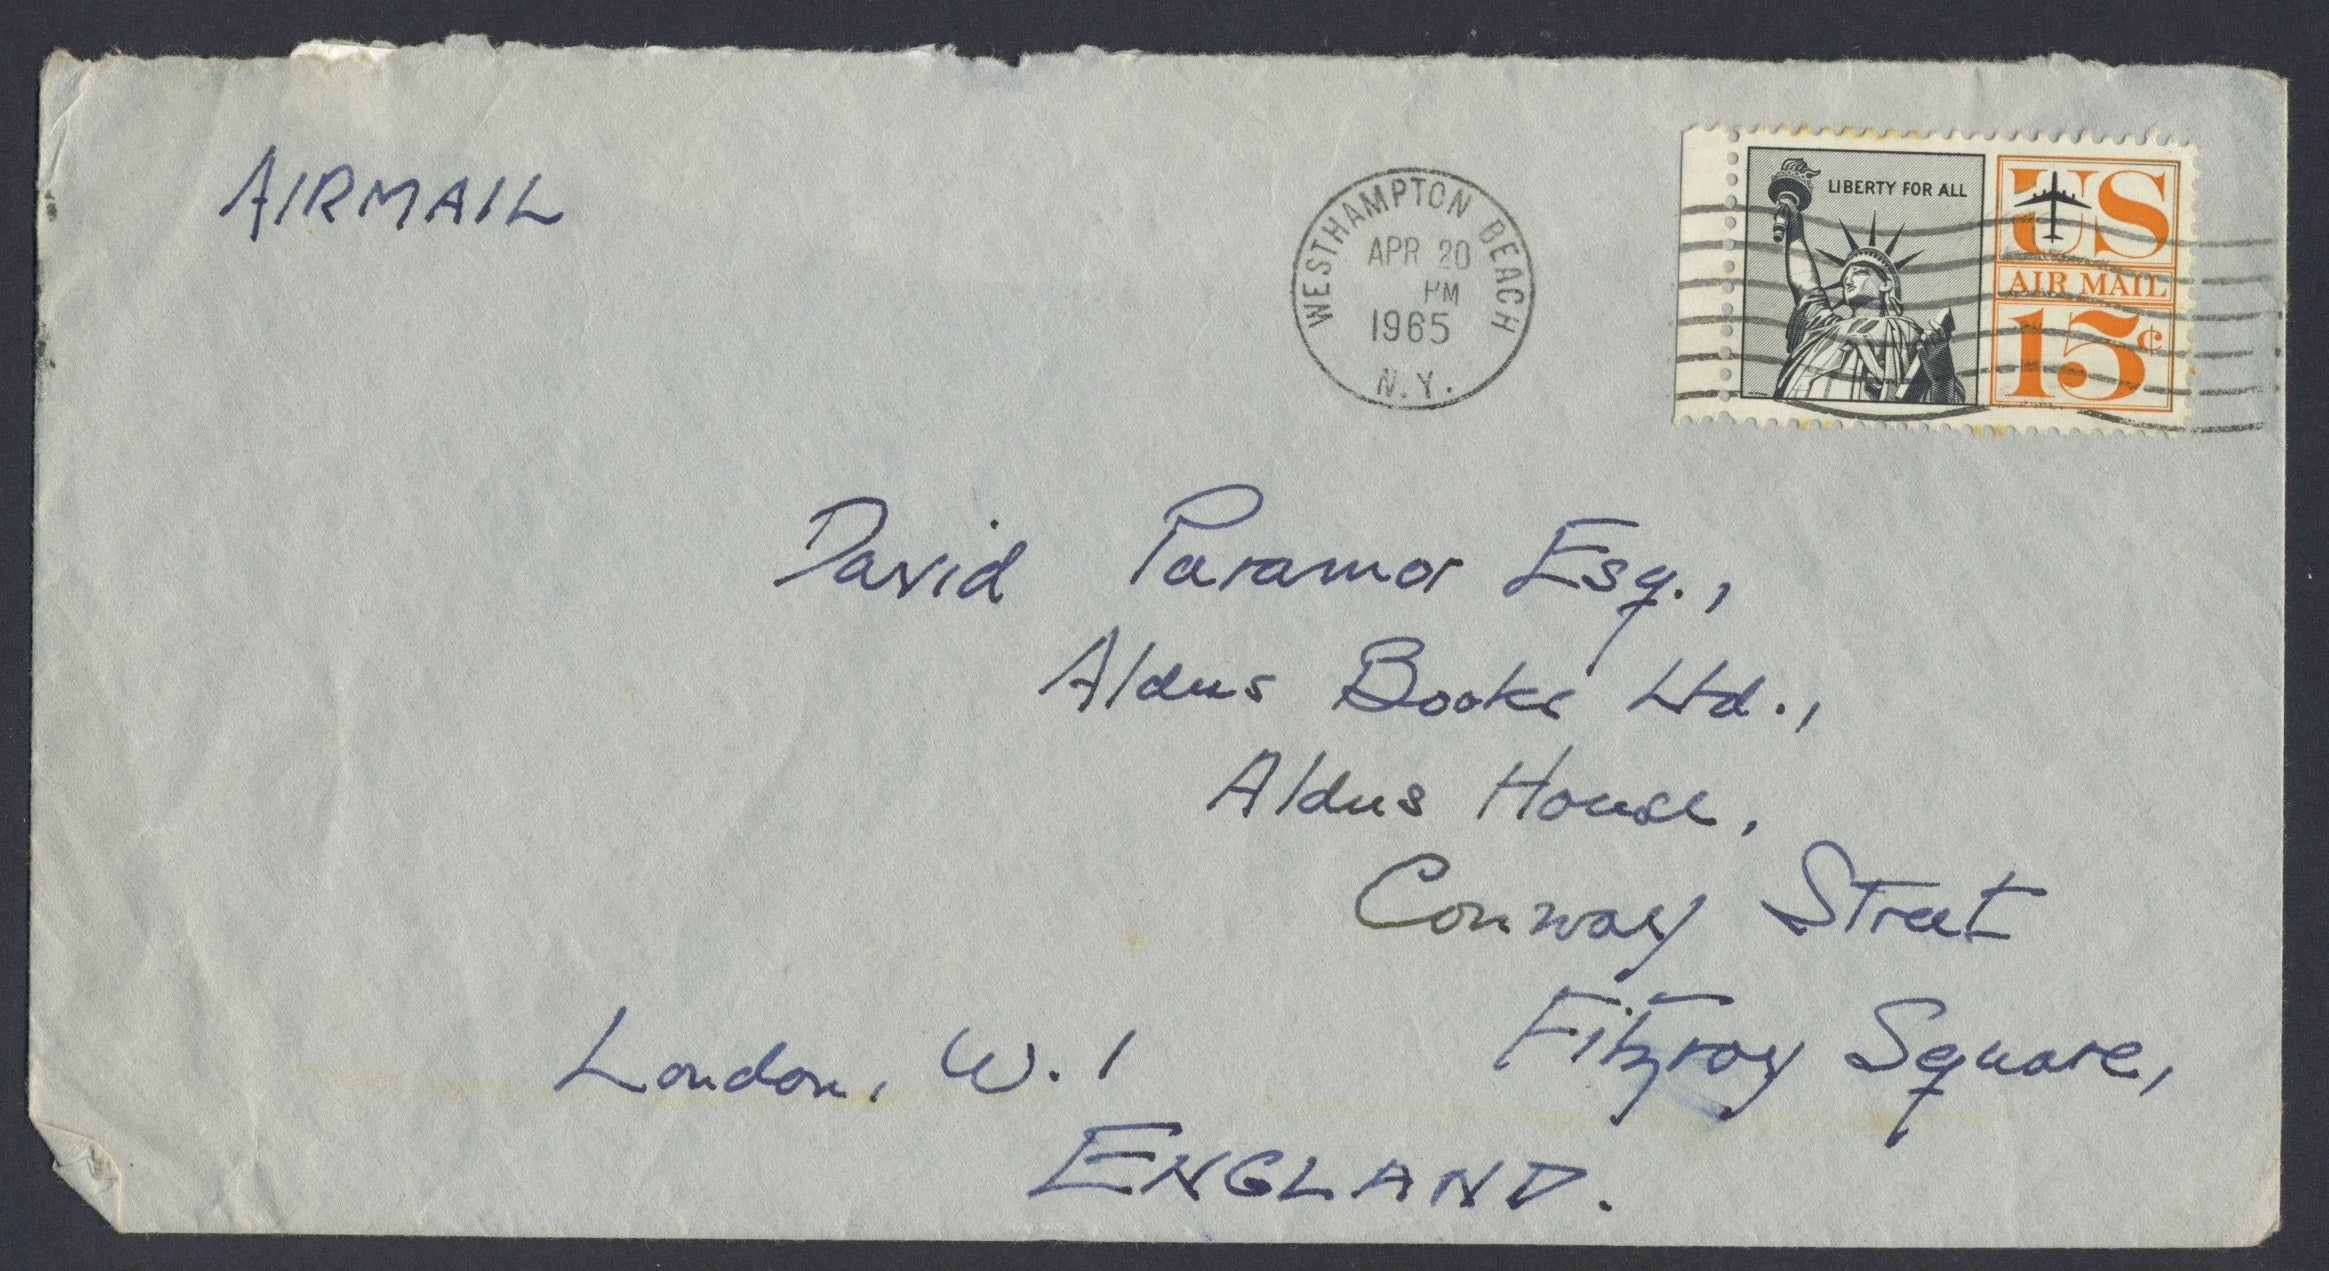 AIRMAIL
WESTHAMPTON BEACH
APR 20
PM
1965
N.Y.
LIBERTY FOR ALL
US
AIR MAIL
15¢
David Paramor Esq.,
Aldus Books Ltd.,
Aldus House,
Conway Street
Fitzroy Square,
London, W.1
ENGLAND.